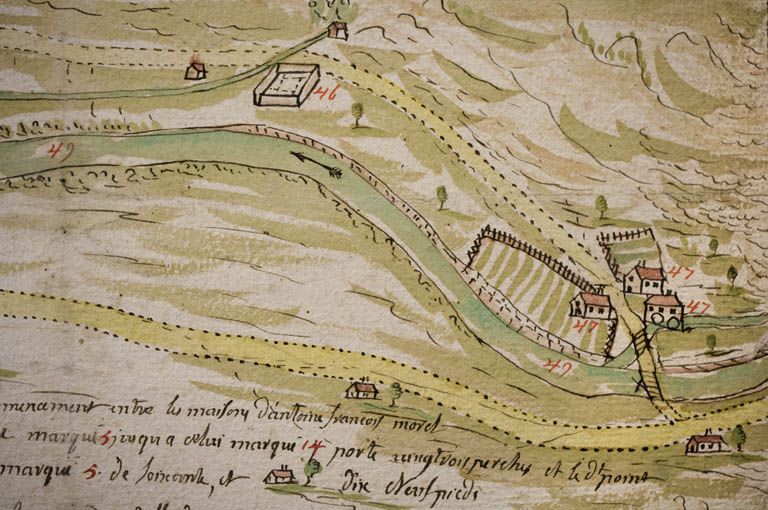 46
49
47
47
47
49
mencement entre les maisons d'antoine francois morel
e marqué 5 jusqu a celui marqué 14 porte vingttrois perches et le dt point
marqué 5. de soixante, et dix et neuf pieds